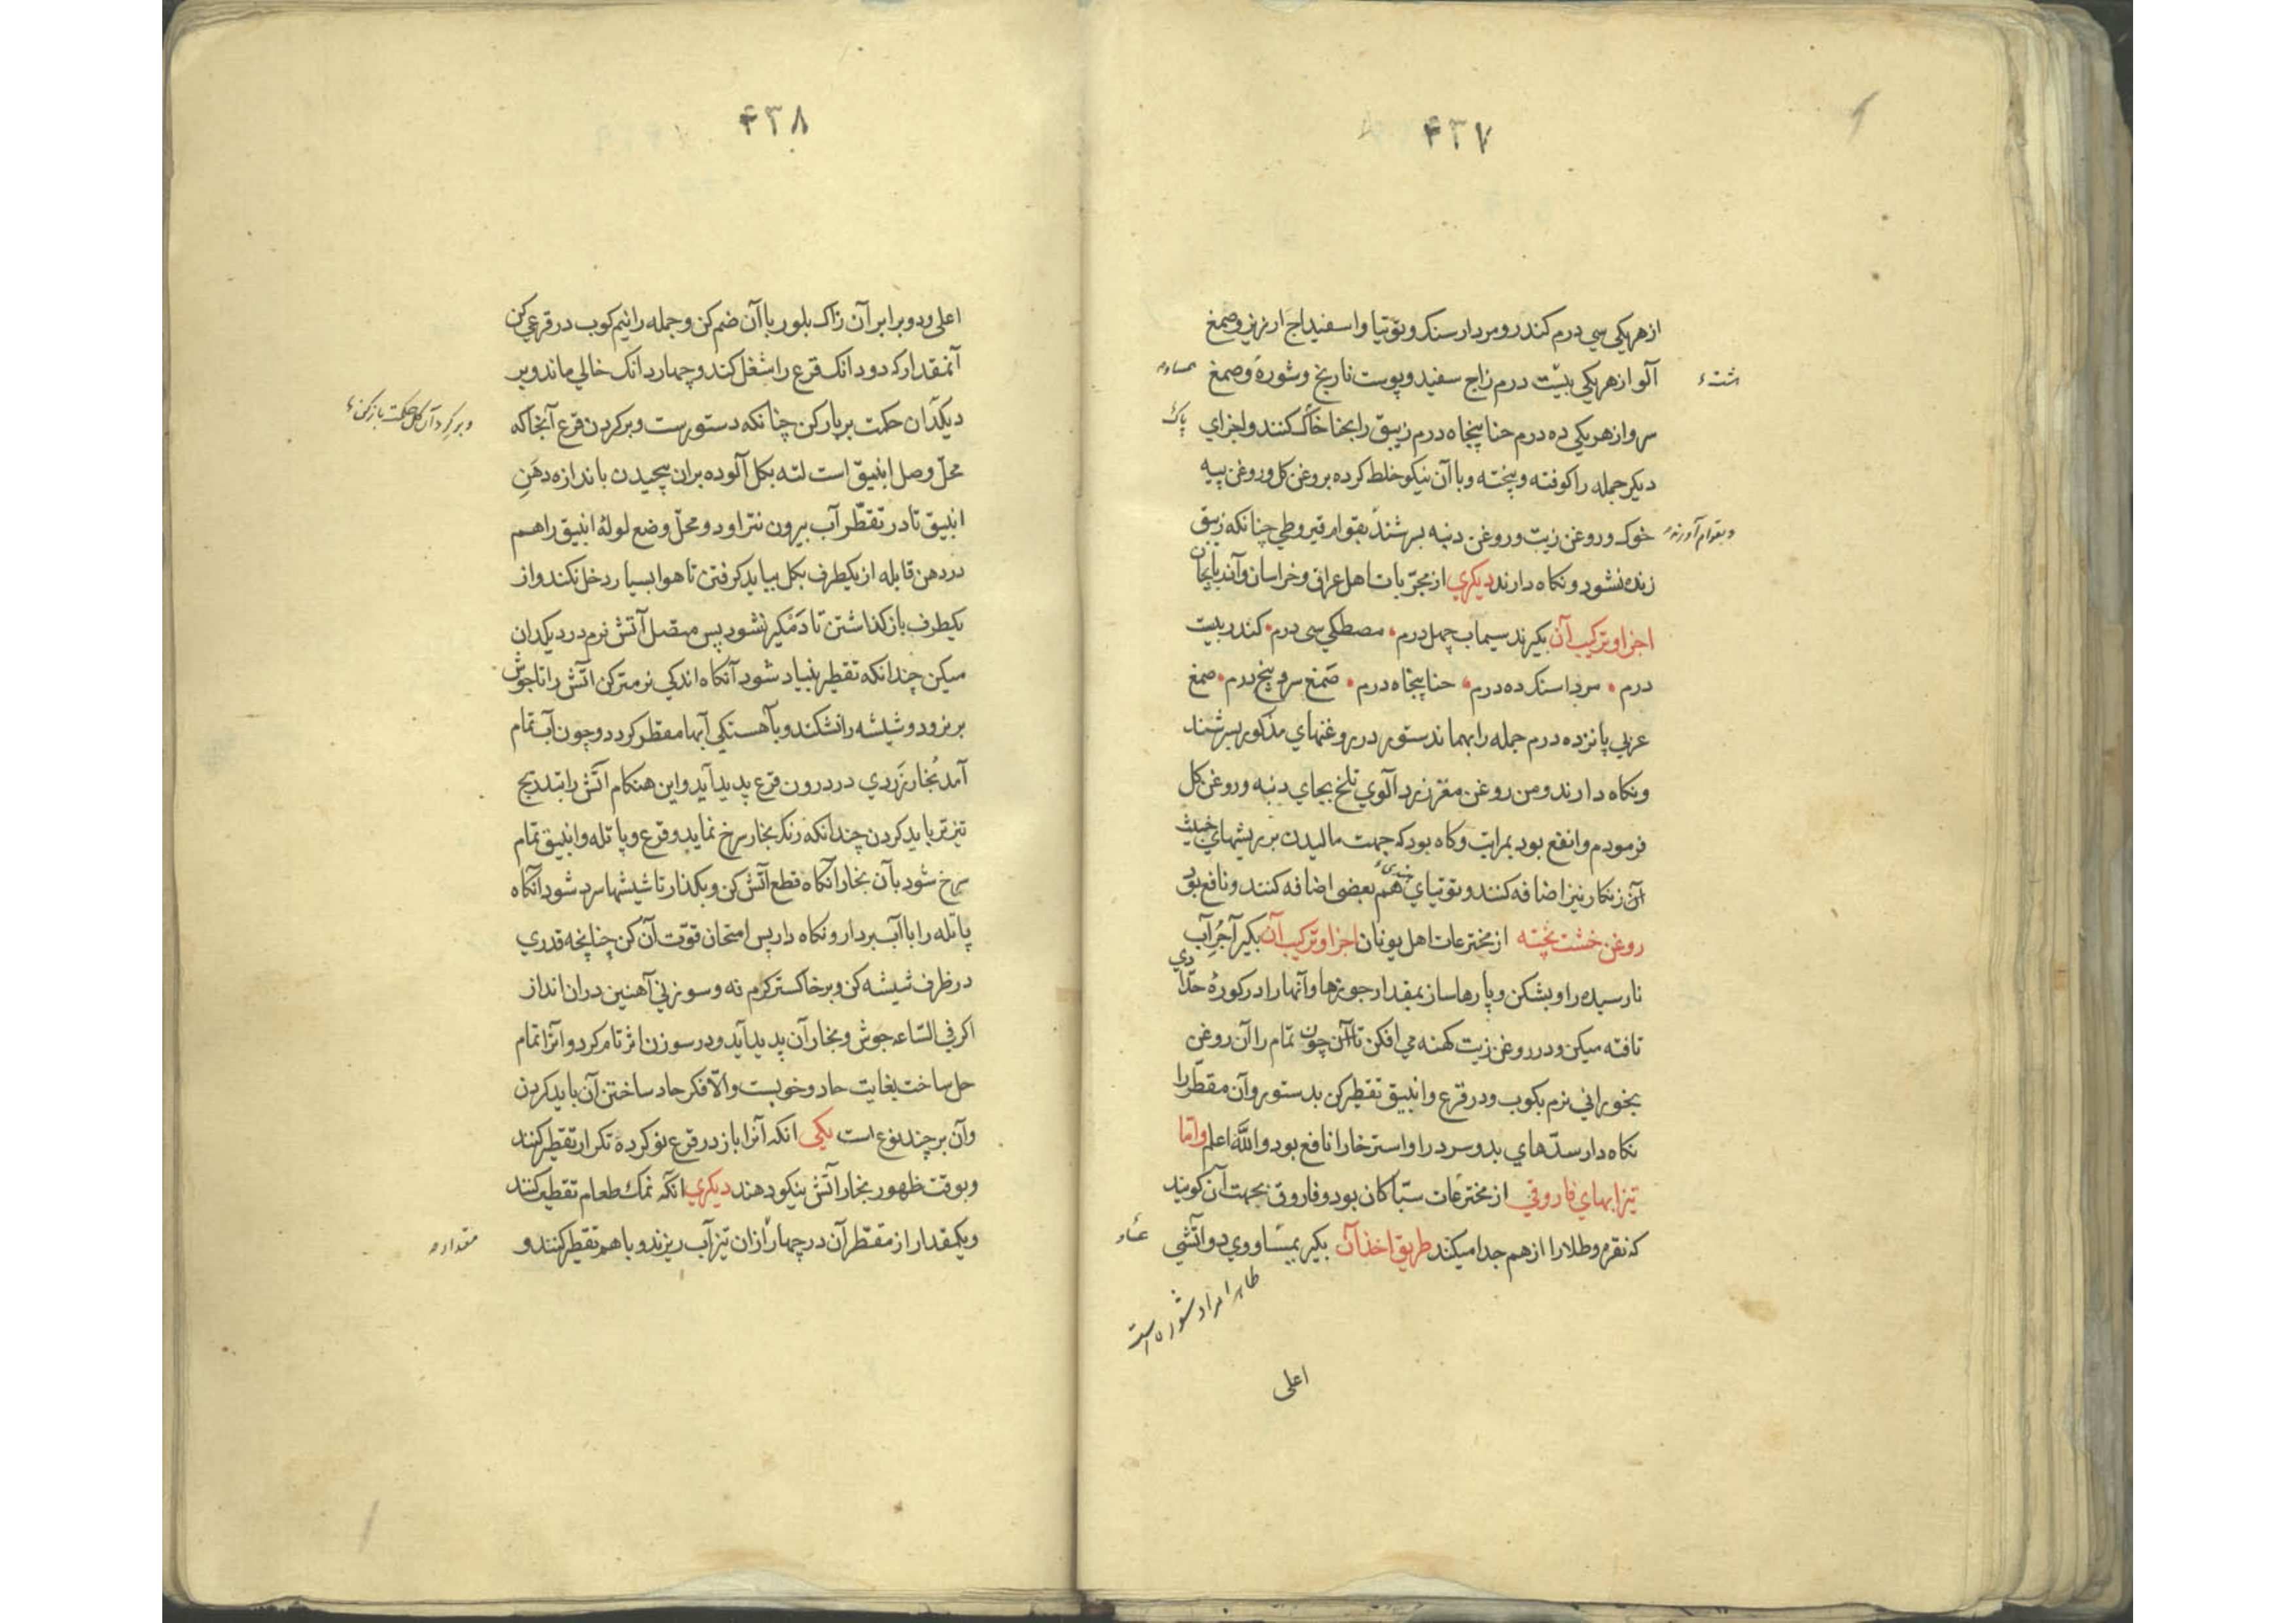 ۴۳۷
از هر یکی سی درم کندر و مردارسنک و توتیا و اسفیداج ارزیز و صمغ
آلو از هر یکی بیست درم زاج سفید و پوست نارنج و شوره و صمغ
سرو از هر یکی ده درم حنا پنجاه درم زیبق را بحنا خاک کنند و اجزای
پاک
دیکر جمله را کوفته و پخته و با آن نیکو خلط کرده بروغن کل و روغن پیه
خوک و روغن زیت و روغن دنبه بسرشند بقوام قیروطی چنانکه زیبق
و بقوام آورند
زنده نشود و نکاه دارند دیکری از مجربات اهل عراق و خراسان و آذربایجان
اجزا و ترکیب آن بکیرند سیماب چهل درم مصطکی سی درم کندر بیست
درم مرداسنک ده درم حنا پنجاه درم صمغ سرو پنج درم صمغ
عربی پانزده درم جمله را بهماند ستور در روغنهای مذکور بسرشند
و نکاه دارند و من روغن مغز زردآلوی تلخ بجای دنبه و روغن کل
فرمودم و انفع بود بمراتب و کاه بود که جهت مالیدن بر ریشهای خبیث
آن زنکار نیز اضافه کنند و توتیای هندی هم بعضی اضافه کنند و نافع بود
روغن خشت پخته از مخترعات اهل یونان اجزا و ترکیب آن بکیر آجر آب
نارسیده را و بشکن و پارها ساز بمقدار جوزها و آنها را در کوره حدادی
تافته میکن و در روغن زیت کهنه می افکن تا آن چون تمام را آن روغن
بخورانی نرم بکوب و در قرع و انبیق تقطیر کن بدستور و آن مقطر را
نکاه دار سدهای بد و سردرا و استرخا را نافع بود والله اعلم و اما
تیزابهای فاروقی از مخترعات سباکان بود و فاروق بجهت آن کویند
که نقره و طلا را از هم جدا میکند طریق اخذ آن بکیر بمساوی دو آتشی
ظاهرا مراد شوره است
اعلی
۴۳۸
اعلی و دو برابر آن زاک بلور با آن ضم کن و جمله را نیم کوب در قرعی کن
آنمقدار که دو دانک قرع را شغل کند و چهار دانک خالی ماند و بر
دیکدان حکمت بربار کن چنانکه دستورست و بر کردن قرع آنجا که
و بر کرد آن کل حکمت باز کن
محل وصل انبیق است لته بکل آلوده بران پیچیدن باندازه دهن
انبیق تا در تقطر آب بیرون نتراود و محل وضع لوله انبیق را هم
در دهن قابله از یکطرف بکل بباید کرفتن تا هوا بسیار دخل نکند و از
یکطرف باز کذاشتن تا دمکیر نشود پس متصل آتش نرم در دیکدان
میکن چندانکه تقطیر بنیاد شود آنکاه اندکی نرمتر کن آتش را تا جوش
بر نزود و شیشه را نشکند و بآهستکی آبها مقطر کردد و چون آب تمام
آمد بخار زردی در درون قرع پدید آید و این هنکام آتش را بتدریج
تیزتر باید کردن چندانکه رنک بخار سرخ نماید و قرع و پاتله و انبیق تمام
سرخ شود بآن بخار آنکاه قطع آتش کن و بکذار تا شیشها سرد شود آنکاه
پاتله را با آب بردار و نکاه دار پس امتحان قوت آن کن چنانچه قدری
در ظرف شیشه کن و بر خاکستر کرم نه و سوزنی آهنین دران انداز
اکر فی الساعه جوش و بخار آن پدید آید و در سوزن اثر تام کرد و آنرا تمام
حل ساخت بغایت حاد و خوبست و الا فکر حاد ساختن آن باید کردن
و آن بر چند نوع است یکی انکه آنرا باز در قرع نو کرده تکرار تقطیر کنند
و بوقت ظهور بخار آتش نیکو دهند دیکری انکه نمک طعام تقطیر کنند
و یکمقدار از مقطر آن در چهار ازان تیزآب ریزند و باهم تقطیر کنند و
مقدار